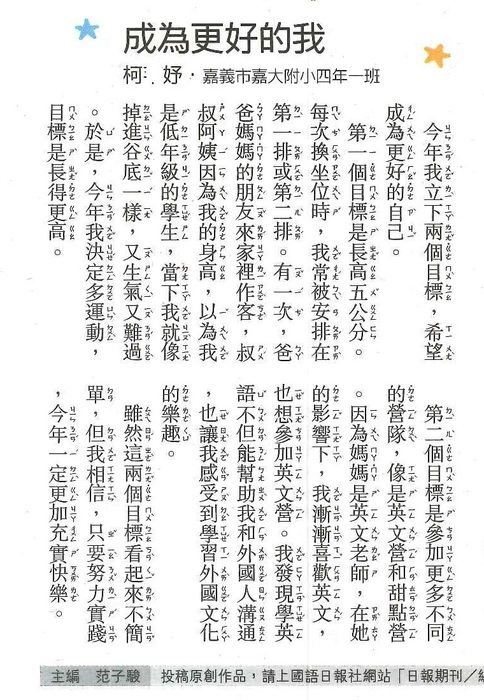 成為更好的我
柯妤・嘉義市嘉大附小四年一班
今年我立下兩個目標，希望
成為更好的自己。
第一個目標是長高五公分。
每次換坐位時，我常被安排在
第一排或第二排。有一次，爸
爸媽媽的朋友來家裡作客，叔
叔阿姨因為我的身高，以為我
是低年級的學生，當下我就像
掉進谷底一樣，又生氣又難過
。於是，今年我決定多運動，
目標是長得更高。
第二個目標是參加更多不同
的營隊，像是英文營和甜點營
。因為媽媽是英文老師，在她
的影響下，我漸漸喜歡英文，
也想參加英文營。我發現學英
語不但能幫助我和外國人溝通
，也讓我感受到學習外國文化
的樂趣。
雖然這兩個目標看起來不簡
單，但我相信，只要努力實踐
，今年一定更加充實快樂。
主編 范子駿 投稿原創作品，請上國語日報社網站「日報期刊／